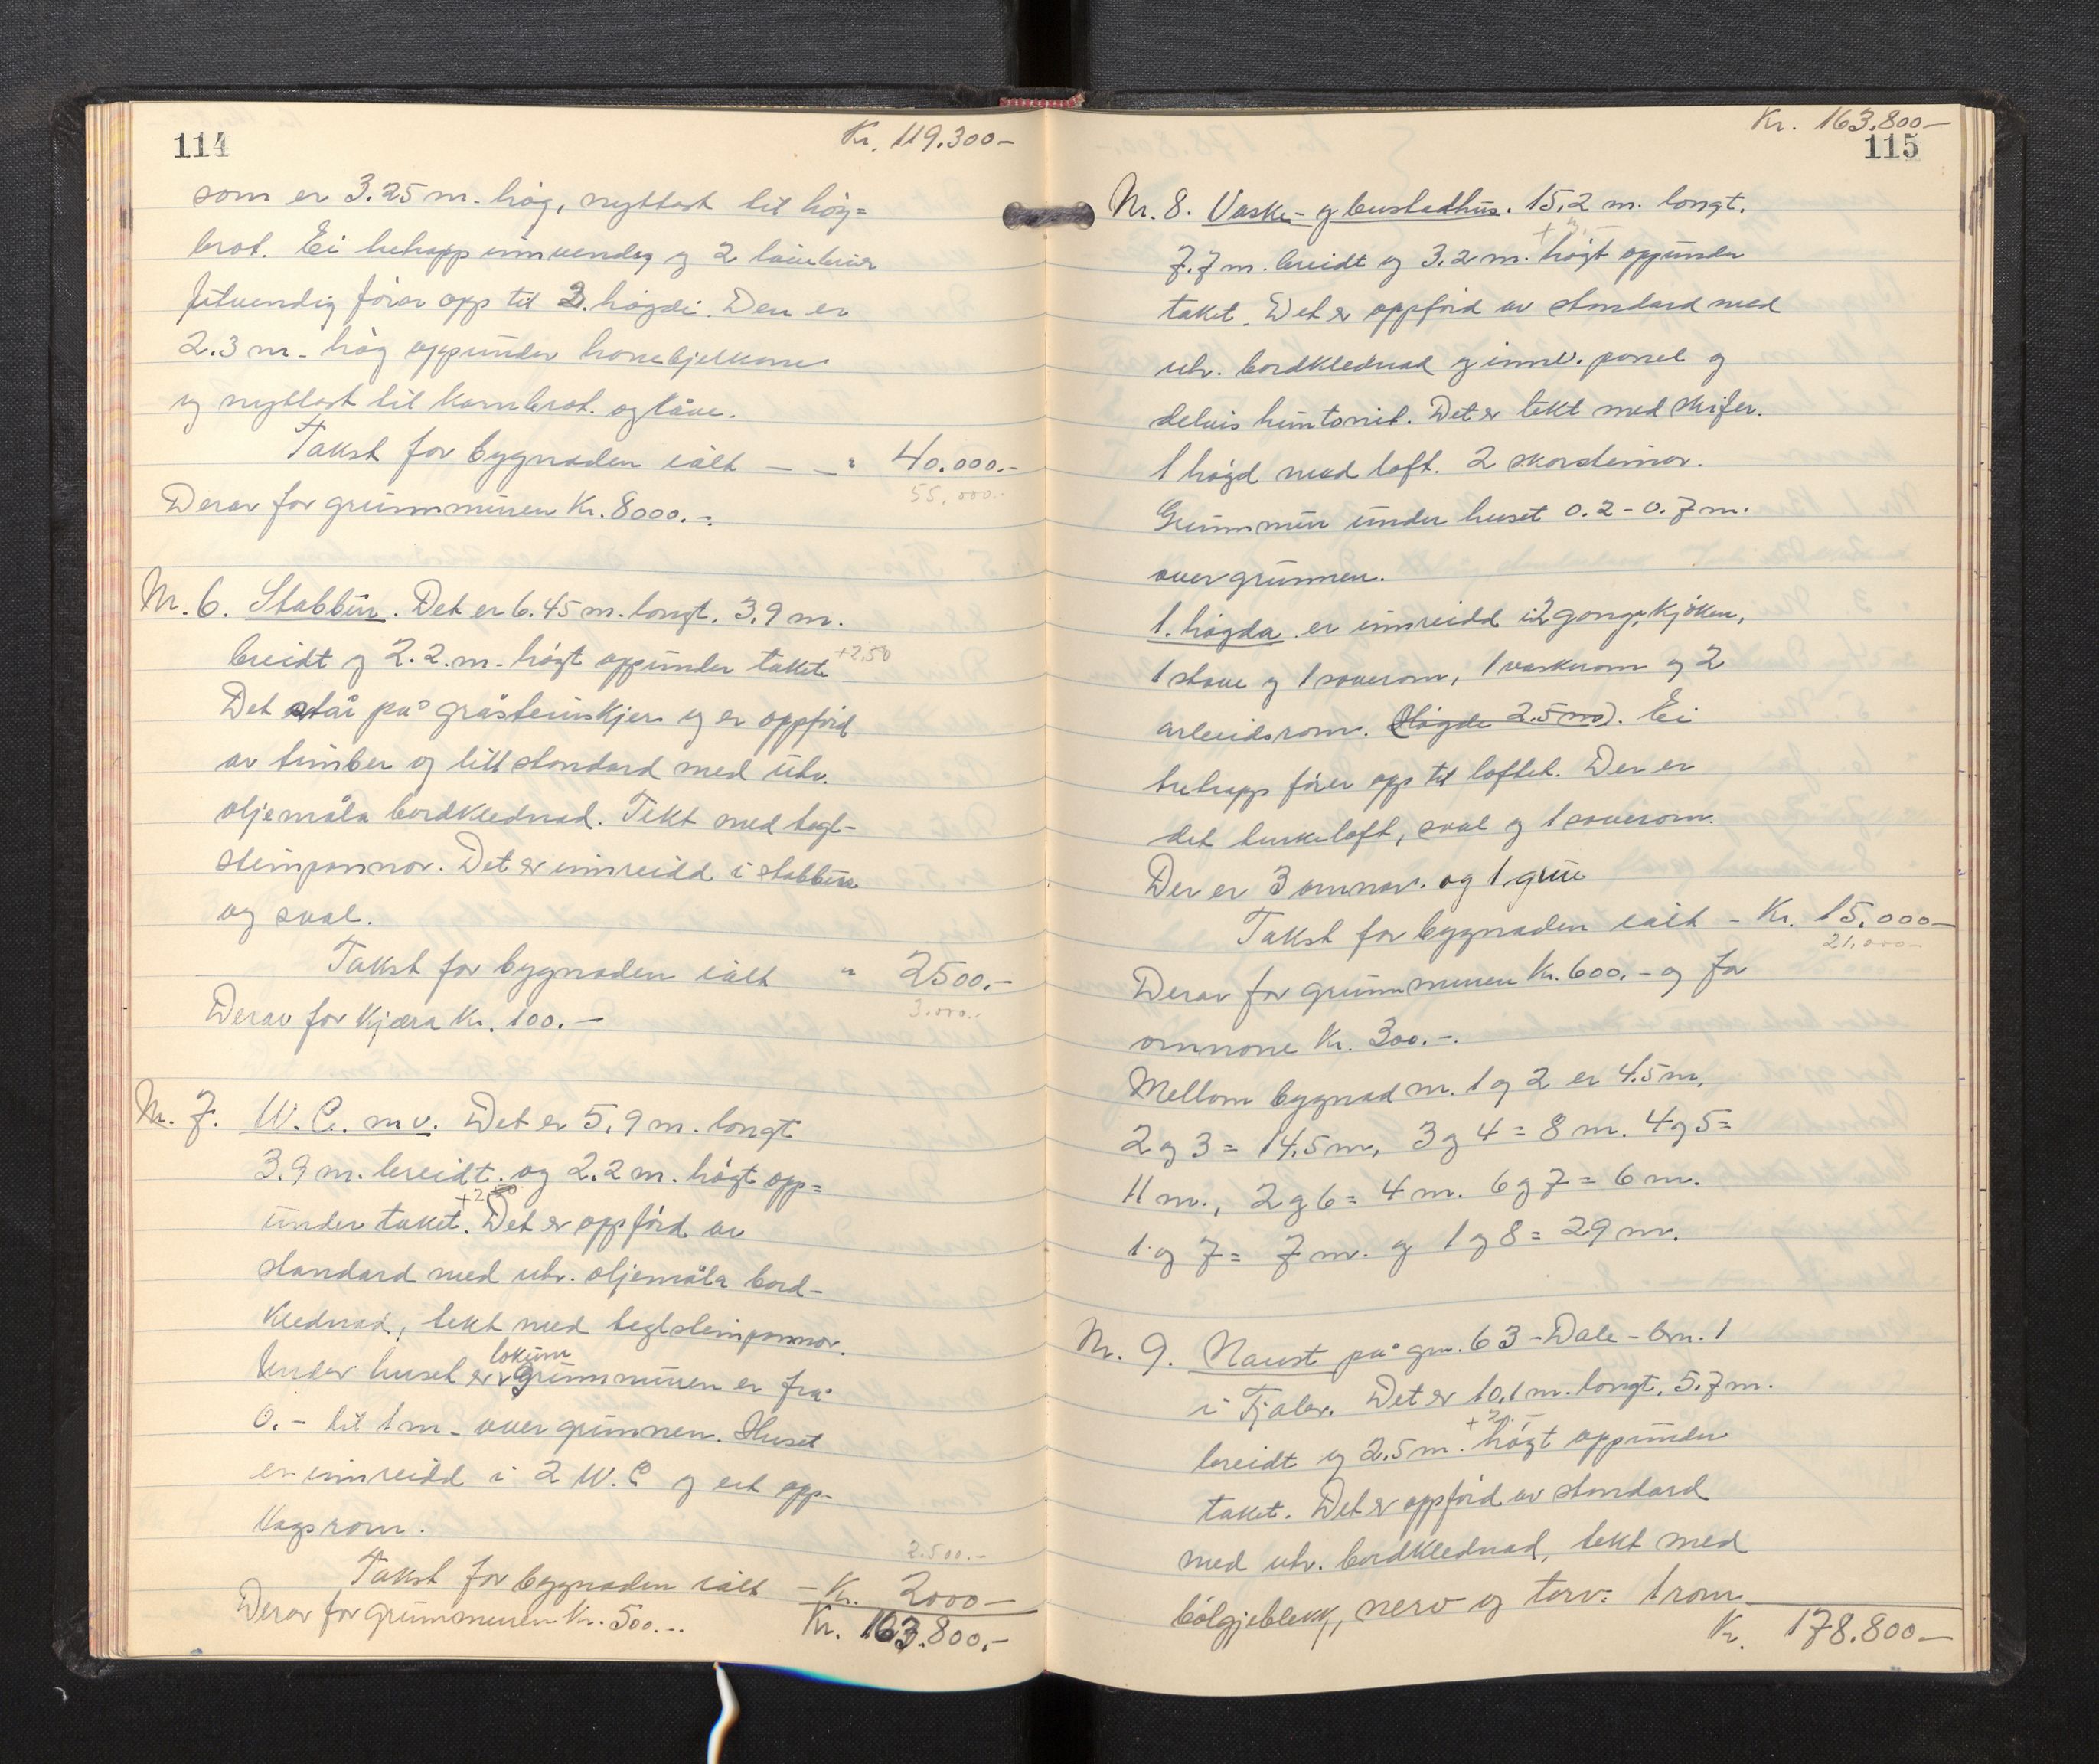 114
Kr. 119.300–
som er 3.25 m. høg, nyttast til høy=
brot. Ei tretrapp innvendig og 2 låvebruer
utvendig förar opp til 2. högdi. Den er
2.3 m. høg oppunder hanebjelkane
og nyttast til kornbrot. og låve.
Takst for bygnaden ialt – – " 40.000.–
55.000.–
Derav for grunnmuren Kr. 8000.–.
Nr. 6. Stabbur. Det er 6.45 m. langt, 3,9 m.
breidt og 2.2. m. högt oppunder taket. +2,50
Det står på gråsteinskjer og er oppförd
av timber og litt standard med utv.
oljemåla bordklednad. Tekt med tegl-
steinpannor. Det er innreidd i stabbur
og sval.
Takst for bygnaden ialt " 2500.–
3.000.–
Derav for kjæra Kr. 100.–
Nr. 7. W.C. m v. Det er 5,9 m. langt
3.9 m. breidt. og 2.2 m. högt opp=
under taket. Det er oppförd av
standard med utv. oljemåla bord-
klednad, tekt med teglsteinpannor.
lokum
Under huset er grunnmuren er frå
0.– til 1 m. over grunnen. Huset
er innreidd i 2 W.C og eit opp-
lagsrom.
2.500.–
Takst for bygnaden ialt – Kr. 2000–
Derav for grunnmuren Kr. 500.–.
Kr. 163.800.–
Kr. 163.800–
115
Nr. 8. Vaske- og bustadhus. 15,2 m. langt.
7.7 m. breidt og 3.2 m. högt oppunder
taket. Det er oppförd av standard med
utv. bordklednad og innv. panel og
delvis huntonit. Det er tekt med skifer.
1 högd med loft. 2 skorsteinar.
Grunnmur under huset 0.2 – 0.7 m.
over grunnen.
1. högda er innreidd i 2 gonger, kjöken,
1 stove og 1 soverom, 1 vaskerom og 2
arbeidsrom. (Högde 2.5 m). Ei
tretrapp förer opp til loftet. Der er
det turkeloft, sval og 1 soverom.
Der er 3 omnar. og 1 grue
Takst for bygnaden ialt – Kr. 15.000–
21.000–
Derav for grunnmuren Kr. 600.– og for
omnane Kr. 300.–.
Mellom bygnad nr. 1 og 2 er 4.5 m,
2 og 3 = 14,5 m, 3 og 4 = 8 m. 4 og 5 =
11 m., 2 og 6 = 4 m. 6 og 7 = 6 m.
1 og 7 = 7 m. og 1 og 8 = 29 m.
Nr. 9. Naust på gnr. 63 – Dale – bnr. 1
i Fjaler. Det er 10,1 m. langt, 5.7 m.
breidt og 2.5 m. högt oppunder
taket. Det er oppförd av standard
med utv. bordklednad, tekt med
bölgjeblekk, nerv og torv. 1 rom
Kr. 178.800–